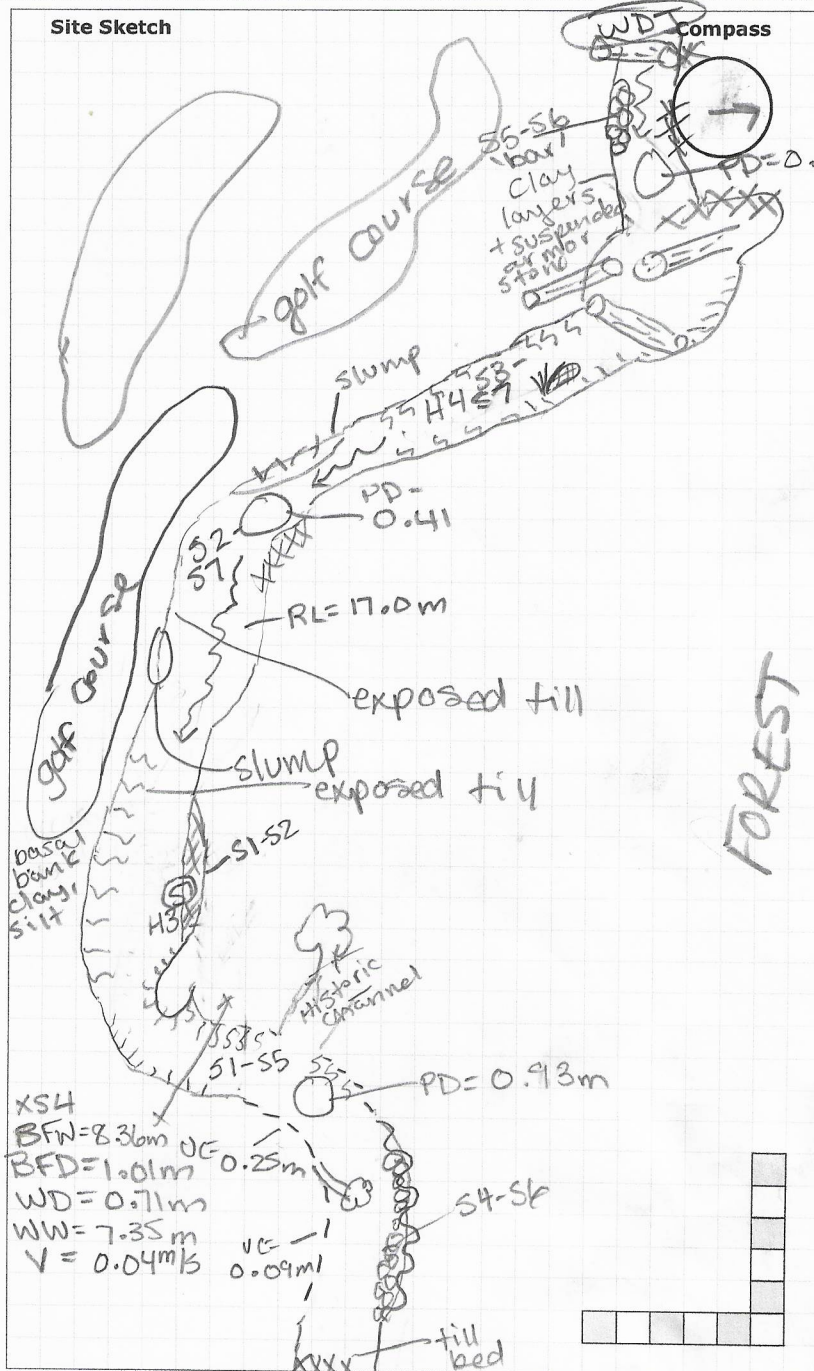 Site Sketch
Compass
WDJ
S5-S6
bar/
clay
layers
+ suspended
armor
stone
PD=0.
golf course
slump
S3-
H4 S7
PD=
0.41
S2
S7
RL=17.0m
exposed till
golf course
slump
exposed till
basal
bank
clay,
silt
S1-S2
S7
H3
FOREST
Historic
Channel
S1-S5
PD= 0.93m
XS4
BFW=8.36m
BFD=1.01m
WD=0.71m
WW=7.35m
V= 0.04m/s
UC=
0.25m
S4-S6
UC=
0.09m
till
bed